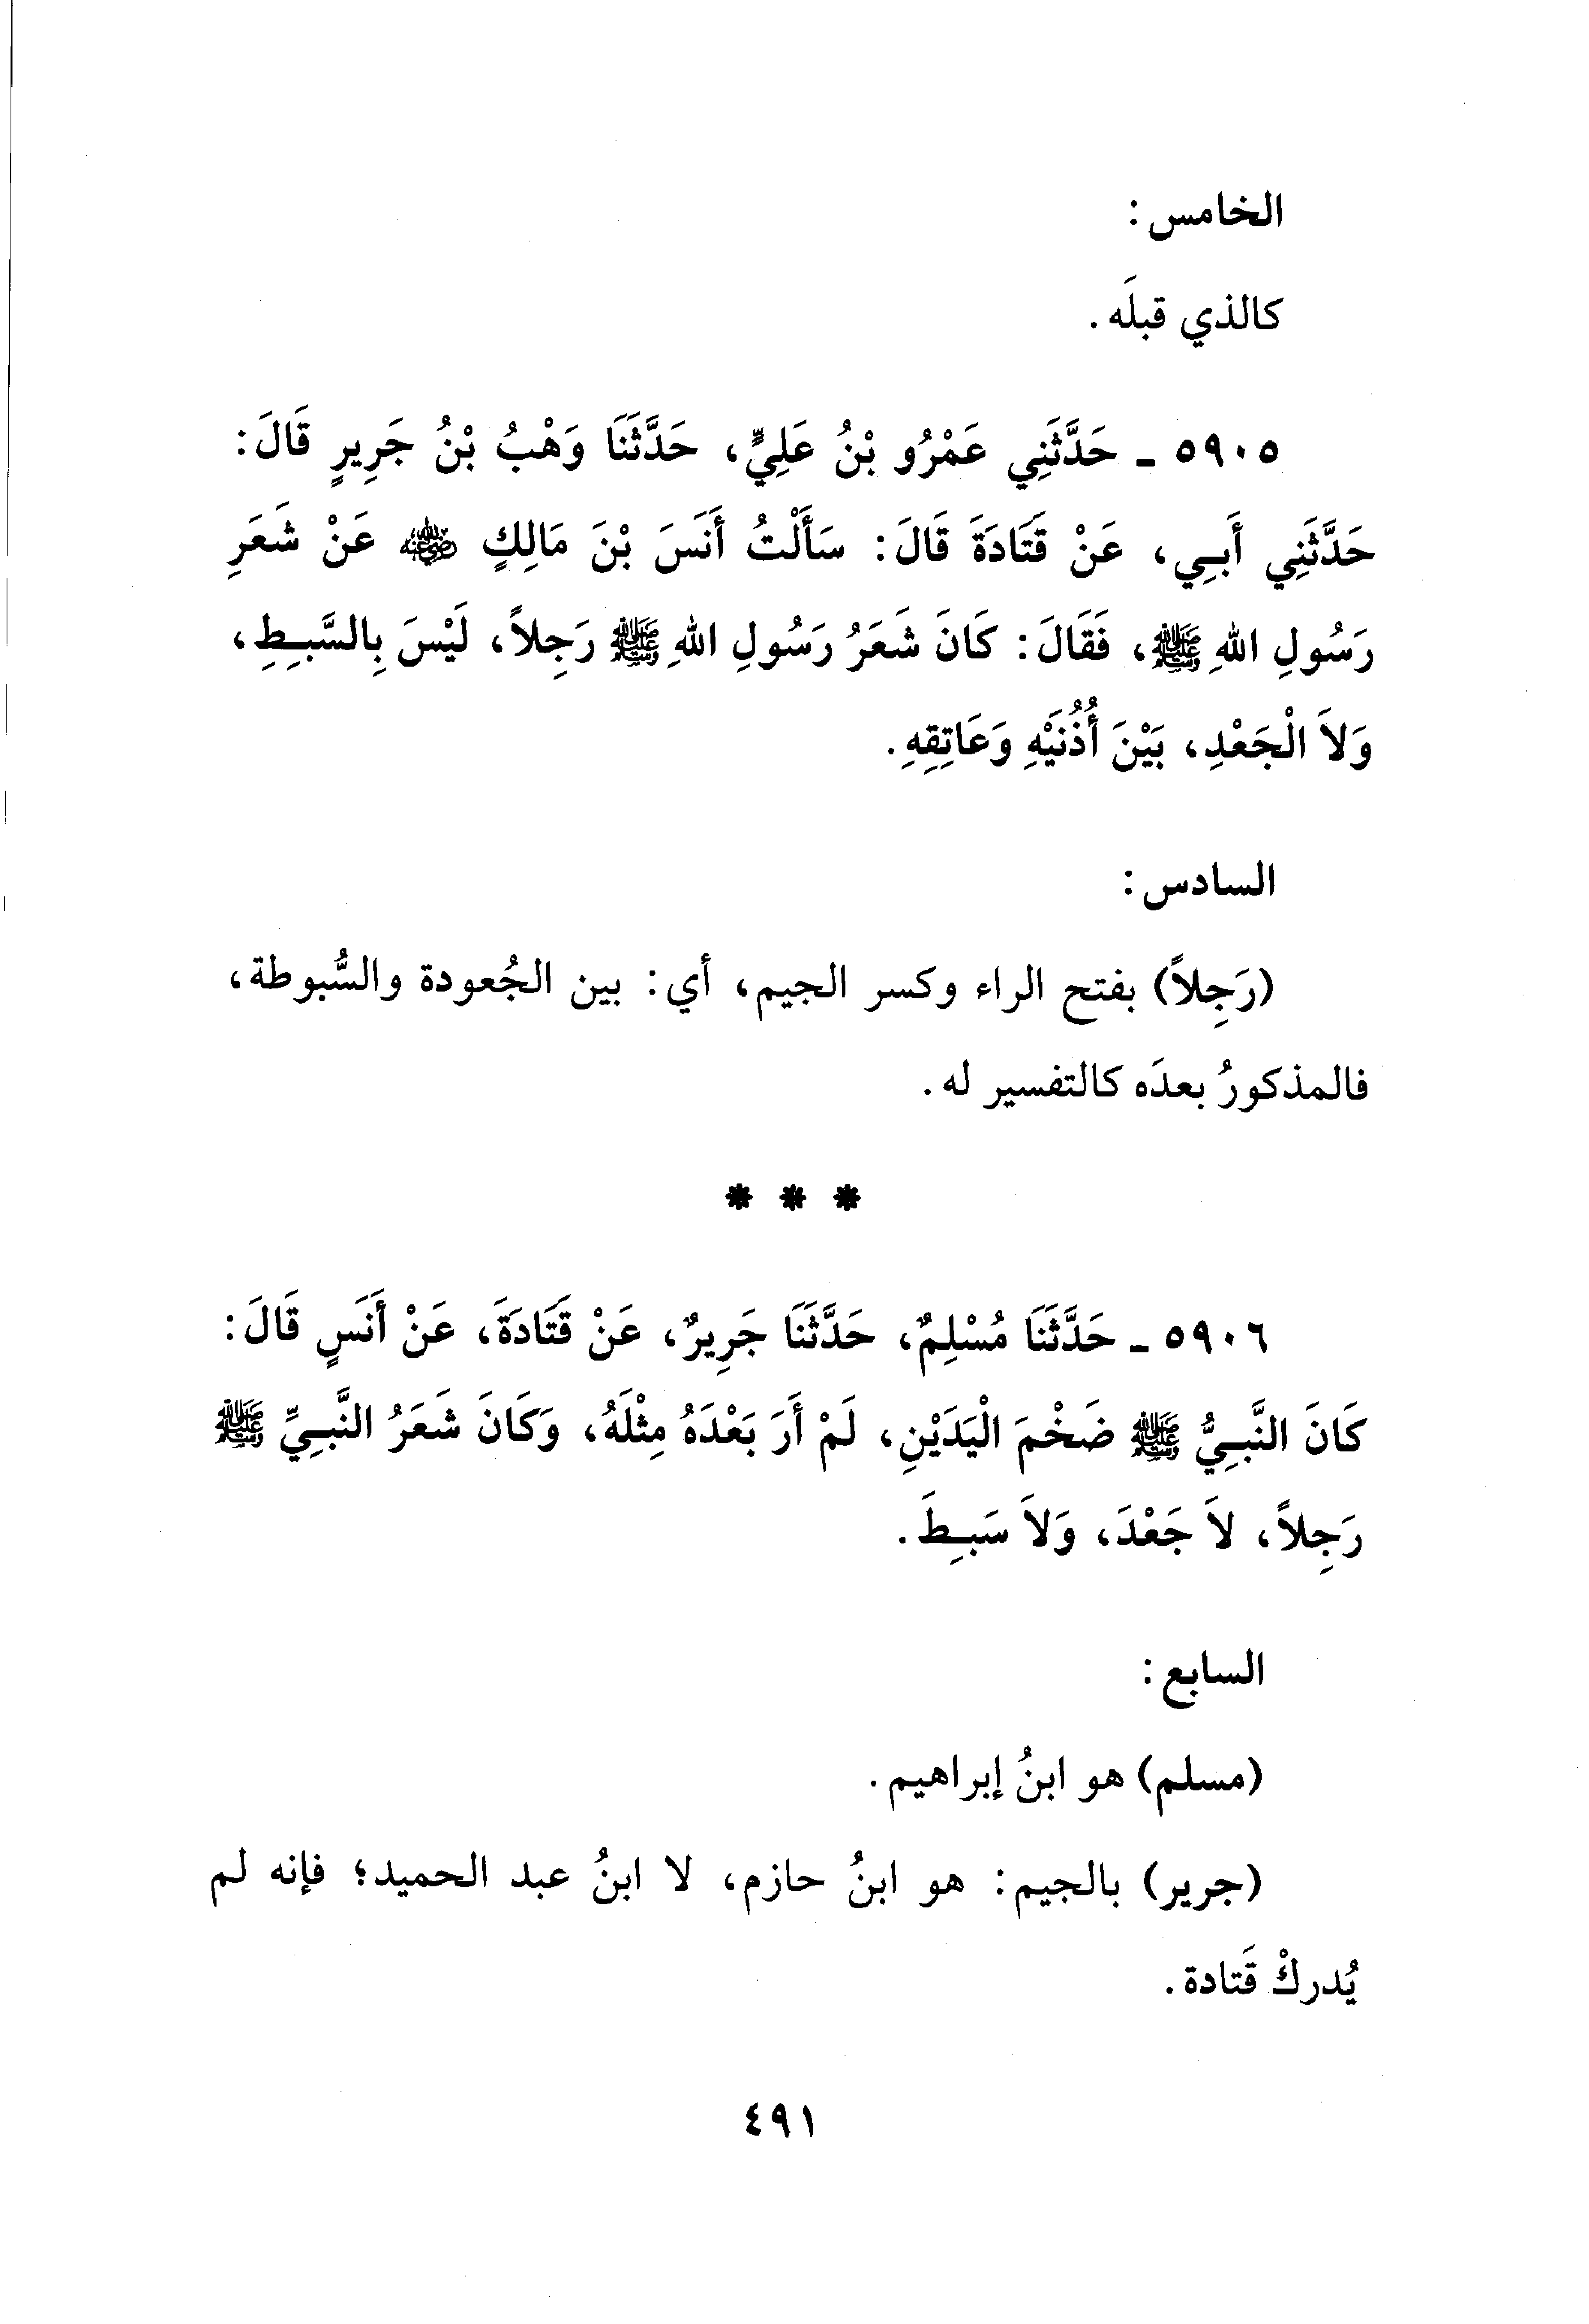 الخامس:
كالذي قبلَه.
٥٩٠٥ ـ حَدَّثَنِي عَمْرُو بْنُ عَلِيٍّ، حَدَّثَنَا وَهْبُ بْنُ جَرِيرٍ قَالَ:
حَدَّثَنِي أَبِي، عَنْ قَتَادَةَ قَالَ: سَأَلْتُ أَنَسَ بْنَ مَالِكٍ رضي الله عنه عَنْ شَعَرِ
رَسُولِ اللهِ ﷺ، فَقَالَ: كَانَ شَعَرُ رَسُولِ اللهِ ﷺ رَجِلاً، لَيْسَ بِالسَّبِطِ،
وَلاَ الْجَعْدِ، بَيْنَ أُذُنَيْهِ وَعَاتِقِهِ.
السادس:
(رَجِلاً) بفتح الراء وكسر الجيم، أي: بين الجُعودة والسُّبوطة،
فالمذكورُ بعدَه كالتفسير له.
* * *
٥٩٠٦ ـ حَدَّثَنَا مُسْلِمٌ، حَدَّثَنَا جَرِيرٌ، عَنْ قَتَادَةَ، عَنْ أَنَسٍ قَالَ:
كَانَ النَّبِيُّ ﷺ ضَخْمَ الْيَدَيْنِ، لَمْ أَرَ بَعْدَهُ مِثْلَهُ، وَكَانَ شَعَرُ النَّبِيِّ ﷺ
رَجِلاً، لاَ جَعْدَ، وَلاَ سَبِطَ.
السابع:
(مسلم) هو ابنُ إبراهيم.
(جرير) بالجيم: هو ابنُ حازم، لا ابنُ عبد الحميد؛ فإنه لم
يُدركْ قَتادة.
٤٩١